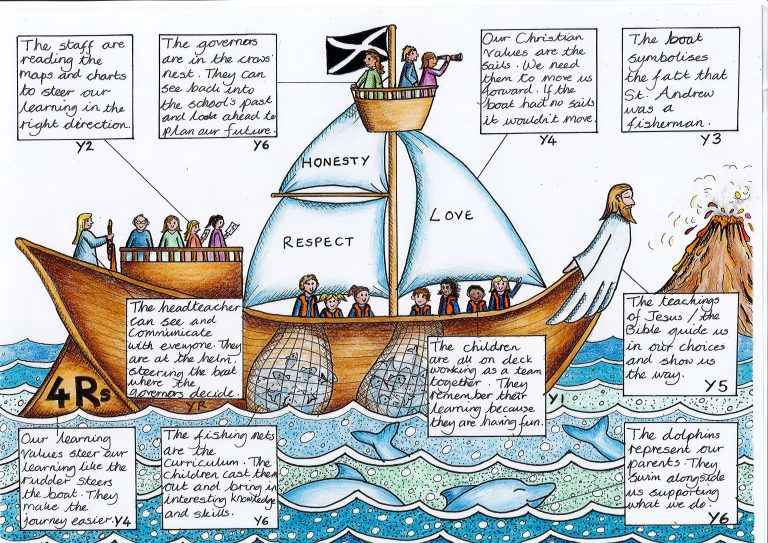 The staff are
reading the
maps and charts
to steer our
learning in the
right direction.
Y2
The governers
are in the crows
nest. They can
see back into
the school's past
and look ahead to
plan our future.
Y6
Our Christian
values are the
sails. We need
them to move us
forward. If the
boat had no sails
it wouldn't move.
Y4
The boat
symbolises
the fact that
St. Andrew
was a
fisherman.
Y3
HONESTY
RESPECT
LOVE
The headteacher
can see and
communicate
with everyone. They
are at the helm,
steering the boat
where the
governors decide.
YR
The children
are all on deck
working as a team
together. They
remember their
learning because
they are having fun.
Y1
The teachings
of Jesus / the
Bible guide us
in our choices
and show us
the way.
Y5
4Rs
Our learning
values steer our
learning like the
rudder steers
the boat. They
make the
journey easier.
Y4
The fishing nets
are the
curriculum. The
children cast them
out and bring in
interesting knowledge
and skills.
Y6
The dolphins
represent our
parents. They
swim alongside
us supporting
what we do.
Y6